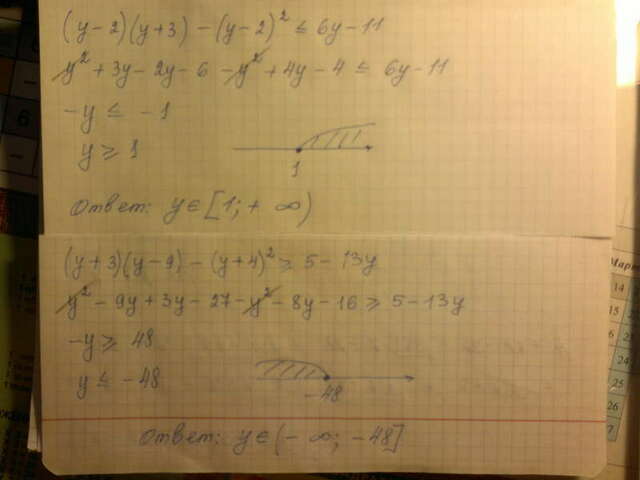 (y-2)(y+3)-(y-2)² ≤ 6y-11
y²+3y-2y-6-y²+4y-4 ≤ 6y-11
-y ≤ -1
y ≥ 1
1
Ответ: y∈[1;+∞)
(y+3)(y-9)-(y+4)² ≥ 5-13y
y²-9y+3y-27-y²-8y-16 ≥ 5-13y
-y ≥ 48
y ≤ -48
-48
Ответ: y∈(-∞; -48]
6
Март
14
15
25
26